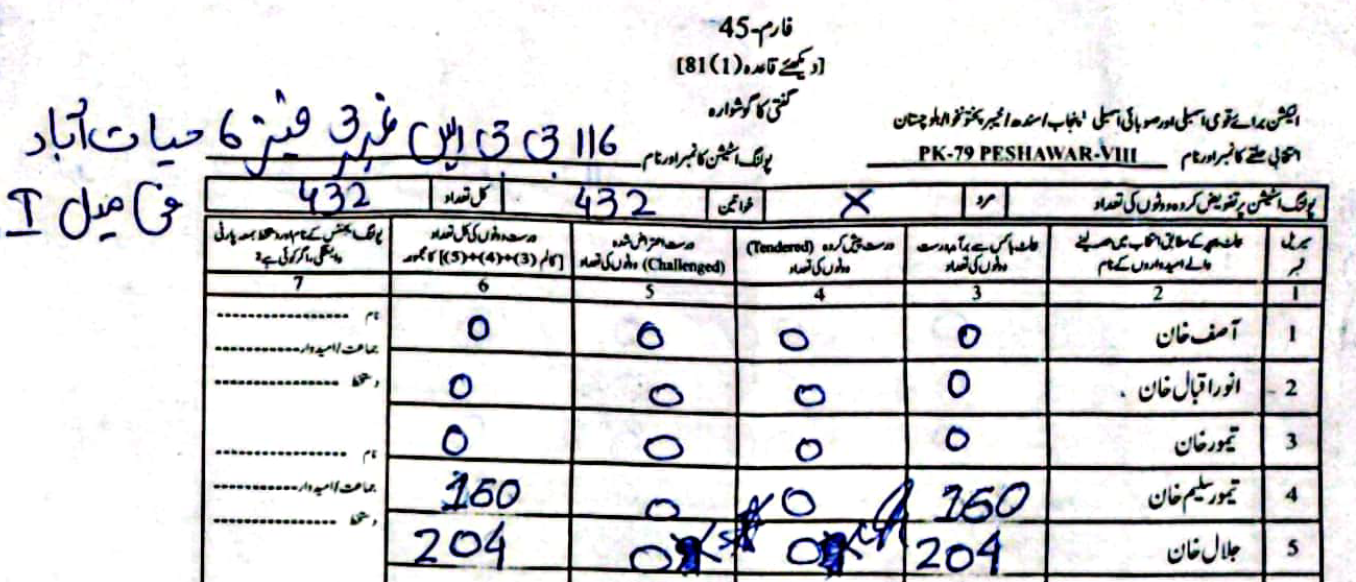 فارم-45
[دیکھئے قاعدہ (1)81]
گنتی کا گوشوارہ
الیکشن برائے قومی اسمبلی اور صوبائی اسمبلی پنجاب/سندھ/خیبر پختونخوا/بلوچستان
انتخابی حلقے کا نمبر اور نام PK-79 PESHAWAR-VIII پولنگ اسٹیشن کا نمبر اور نام 116 جی جی ایس غربی فیز 6 حیات آباد
فی میل I
پولنگ اسٹیشن پر تفویض کردہ ووٹوں کی تعداد مرد X خواتین 432 کل تعداد 432
سیریل نمبر
بیلٹ پیپر کے مطابق انتخاب میں حصہ لینے والے امیدواروں کے نام
بیلٹ باکس سے برآمد درست ووٹوں کی تعداد
درست پیش کردہ (Tendered) ووٹوں کی تعداد
درست اعتراض شدہ (Challenged) ووٹوں کی تعداد
درست ووٹوں کی کل تعداد [کالم (3)+(4)+(5) کا مجموعہ]
پولنگ ایجنٹس کے نام اور دستخط بمعہ پارٹی وابستگی، اگر کوئی ہے؟
1 2 3 4 5 6 7
1 آصف خان 0 0 0 0 نام
جماعت/امیدوار
2 انور اقبال خان 0 0 0 0 دستخط
3 تیمور خان 0 0 0 0 نام
4 تیمور سلیم خان 160 0 0 160 جماعت/امیدوار
5 جلال خان 204 0 0 204 دستخط